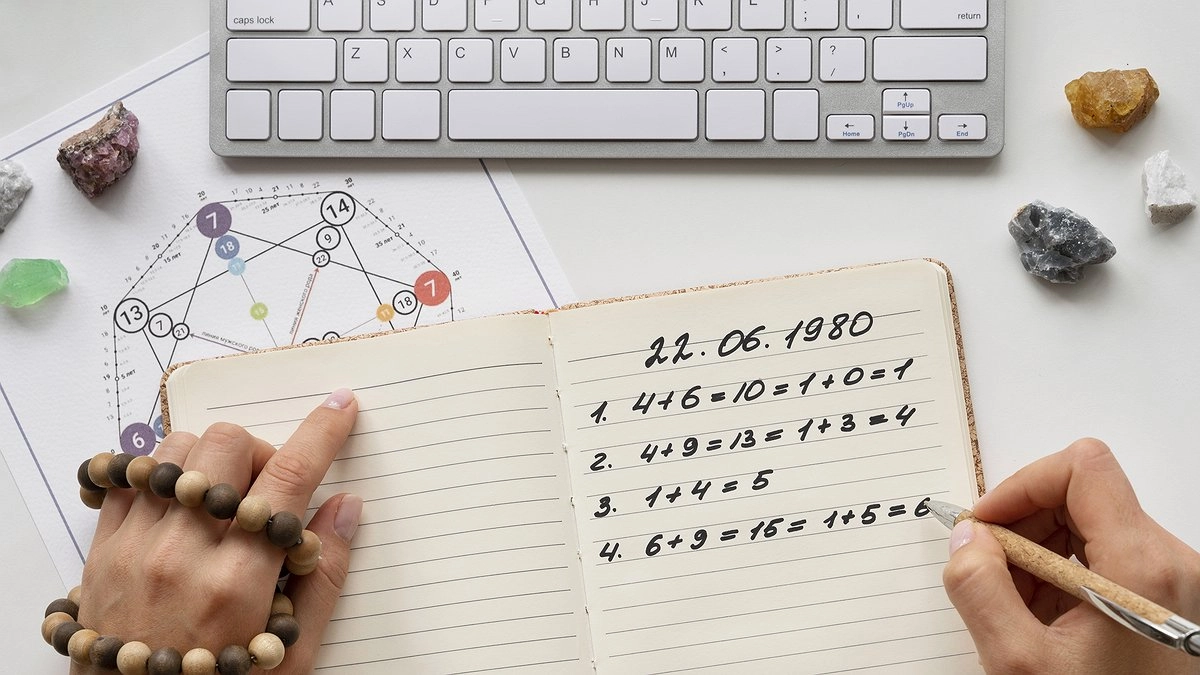 caps lock A S D F G H J K L ; , return
Z X C V B N M < , > . ? /
PgUp
Home PgDn End
20 лет
30 лет
7
14
25 лет
18
9
22
15 лет
35 лет
40 лет
7
18
11
10 лет
13
7
21
линия мужского рода
линия мужского рода
5 лет
6
22.06.1980
1. 4+6=10=1+0=1
2. 4+9=13=1+3=4
3. 1+4=5
4. 6+9=15=1+5=6